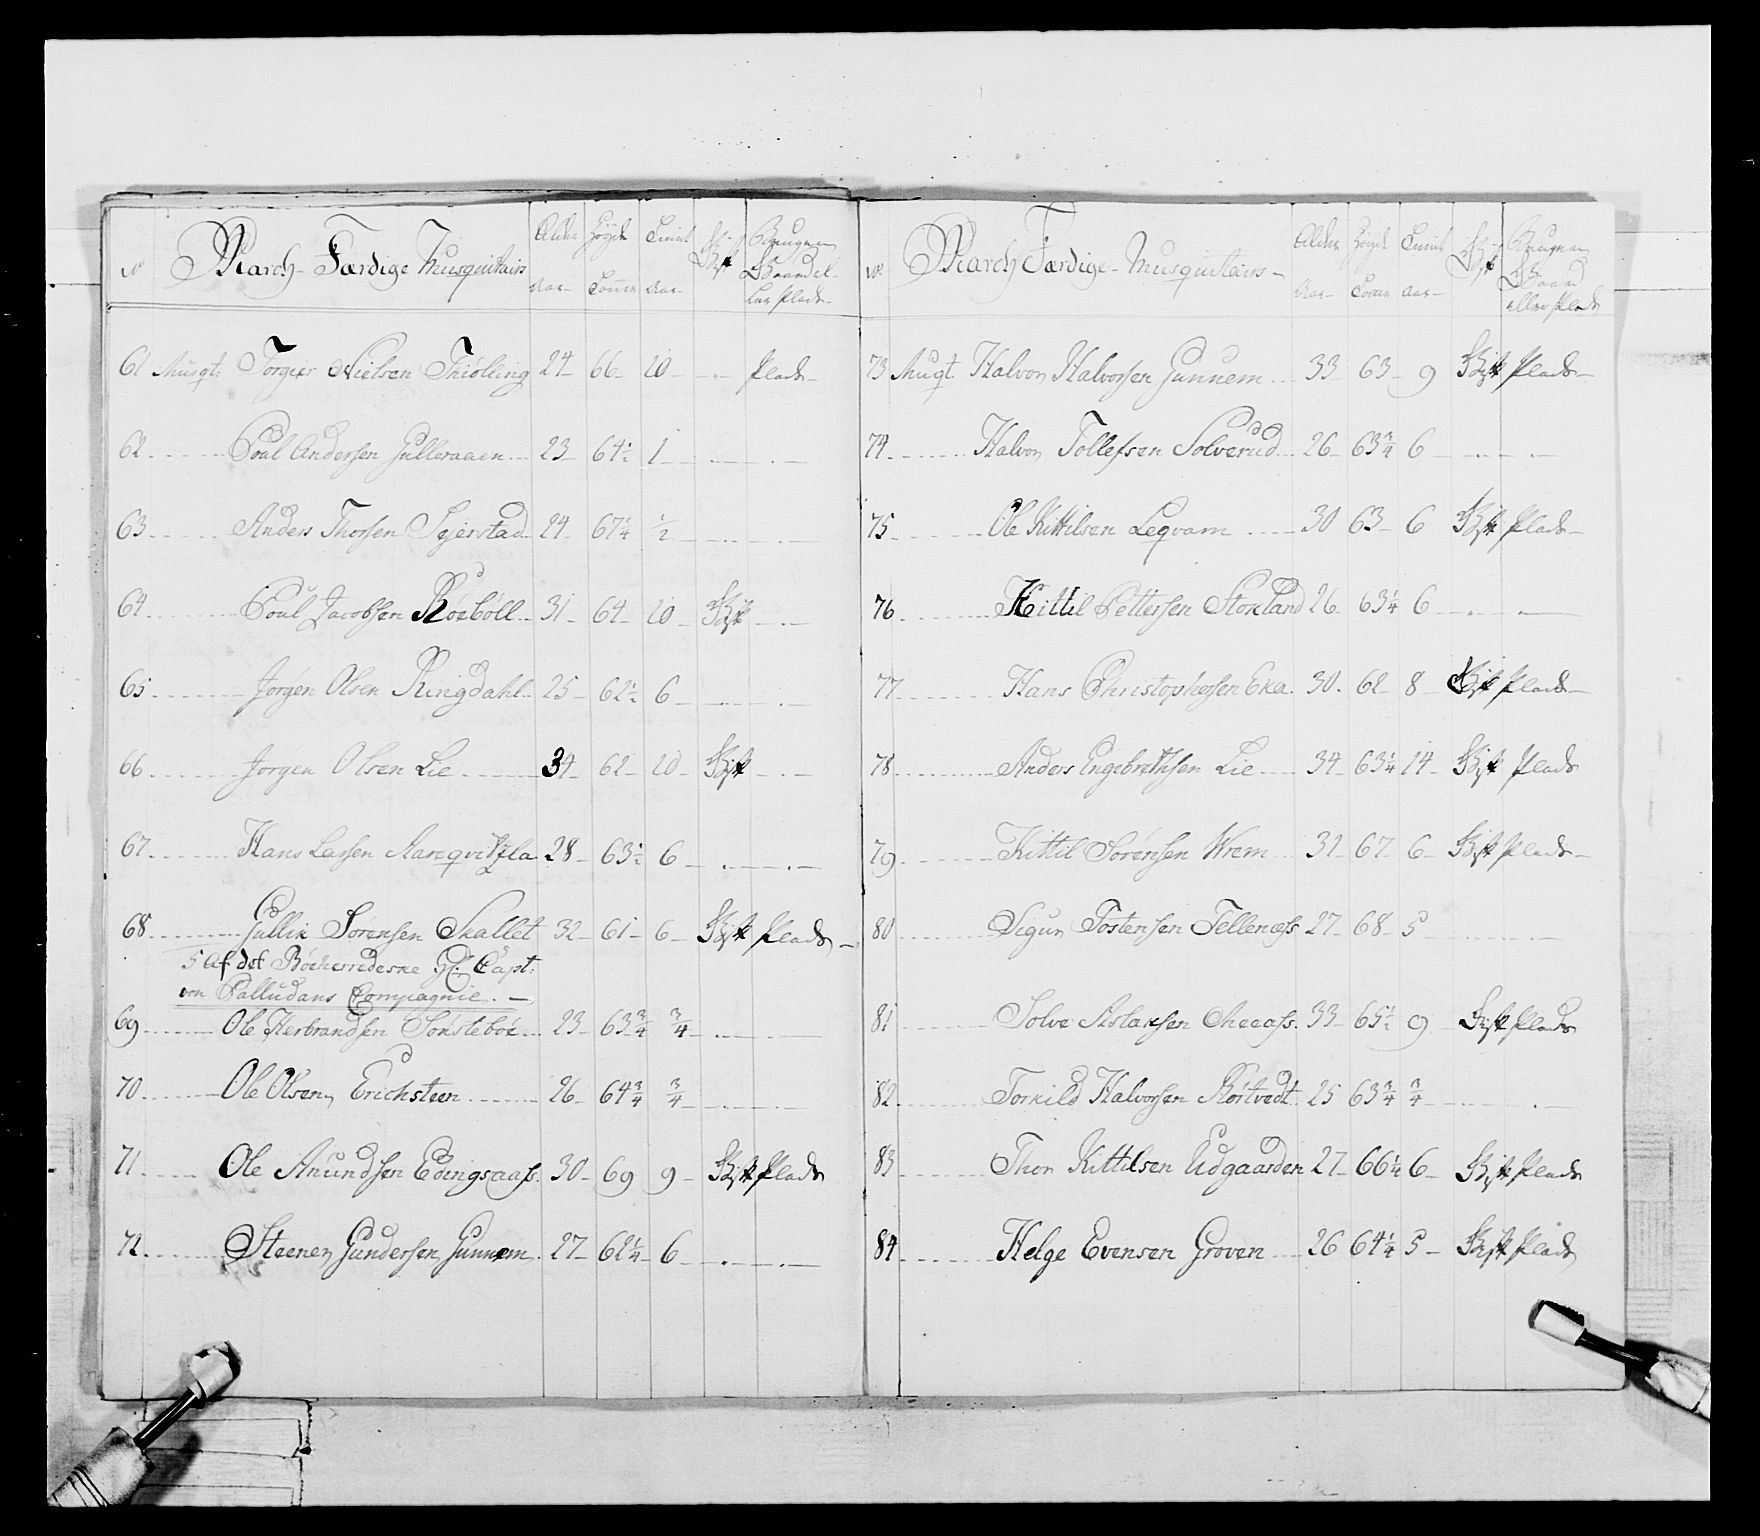 No March-Færdige Musquitairs Alder Aar Høyde Tomer Tient Aar Gift Bruger Gaard el-
ler Plads
61 Musqt: Torgier Nielsen Thiolling 24 66 10 Plads
62 Poul Andersen Gulleraaen 23 64½ 1
63 Anders Thorsen Sejerstad 24 67¼ ½
64 Poul Jacobsen Röeböll 31 64 10 Gift
65 Jorgen Olsen Ringdahl 25 62½ 6
66 Jörgen Olsen Lie 34 62 10 Gift
67 Hans Larsen 28 63½ 6
68 Gullik Sörensen Skallet 32 61 6 Gift Plads
5 Af det Böeherredeske Gl: Capt:
von Palludans Compagnie.
69 Ole Herbrandsen Sönsteböe 23 63¾ ¾
70 Ole Olsen Erichsteen 26 64¾ ¾
71 Ole Anundsen Edingsaass 30 69 9 Gift Plads
72 Steener Gundersen Gunnem 27 62¼ 6
No March Færdige Musquitairs Alder Aar Høyde Tomer Tient Aar Gift Bruger
Gaard
eller Plads
73 Muqt: Halvor Halvorsen Gunnem 33 63 9 Gift Plads
74 Halvor Tollefsen Solverud 26 63¾ 6
75 Ole Kittilsen Leqvam 30 63 6 Gift Plads
76 Kittil Pettersen Stokland 26 63¼ 6
77 Hans Christophersen Eka 30 62 8 Gift Plads
78 Anders Engebrethsen Lie 34 63¼ 14 Gift Plads
79 Kittil Sörensen Wrem 31 67 6 Gift Plads
80 Sigur Tostensen Tellenæss 27 68 5
81 Solve Aslaksen 33 65½ 9 Gift Plads
82 Torkild Halvorsen Röstvedt 25 63¾ ¾
83 Thor Kittelsen Udgaarden 27 66¼ 6 Gift Plads
84 Helge Evensen Groven 26 64¼ 5 Gift Plads